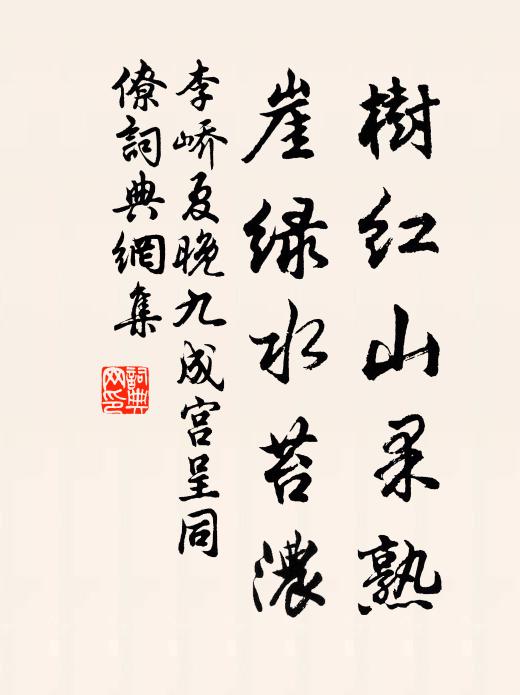 樹紅山果熟
崖绿水苔濃
李嶠夏晚九成宫呈同
僚詞典網集
詞典网印